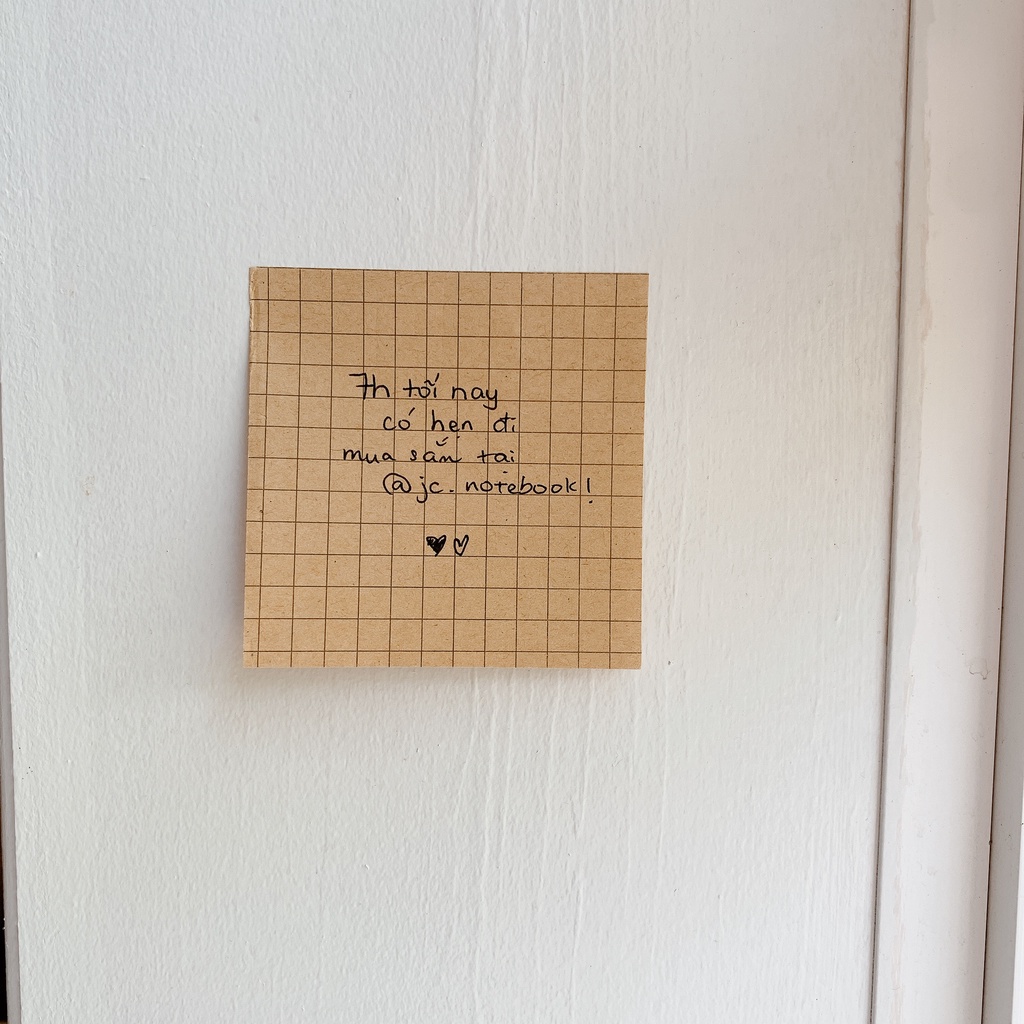 7h tối nay
có hẹn đi
mua sắm tại
@jc.notebook!